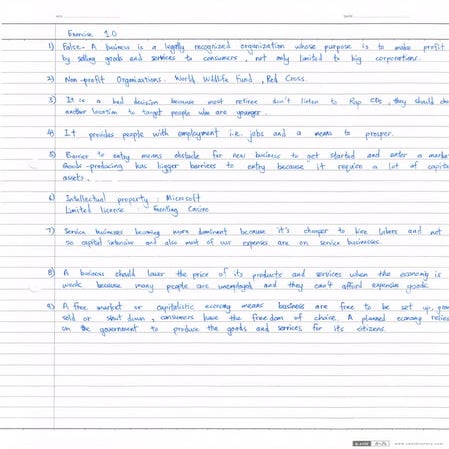 Exercise 1.0
1) False - A business is a legally recognized organization whose purpose is to make profit
by selling goods and services to consumers, not only limited to big corporations.
2) Non-profit Organizations. World Wildlife Fund, Red Cross.
3) It is a bad decision because most retiree don't listen to Rap CDs, they should
another location to target people who are younger.
4) It provides people with employment i.e. jobs and a means to prosper.
5) Barrier to entry means obstacle for new business to get started and enter a market
Goods-producing has bigger barriers to entry because it require a lot of capital
assets.
6) Intellectual property : Microsoft
Limited license : Genting Casino
7) Service businesses becoming more dominant because it's cheaper to hire labors and not
so capital intensive and also most of our expenses are on service businesses.
8) A business should lower the price of its products and services when the economy is
weak because many people are unemployed and they can't afford expensive goods.
9) A free market or capitalistic economy means business are free to be set up,
sold or shut down, consumers have the freedom of choice. A planned economy relies
on the government to produce the goods and services for its citizens.